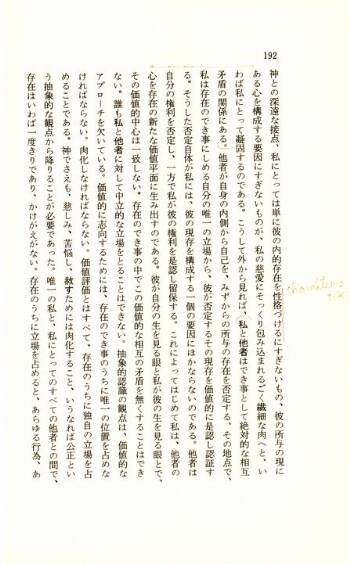 192
神との深遠な接点、私にとっては単に彼の内的存在を性格づけるにすぎないもの、彼の所与の現に
ある心を構成する要因にすぎないものが、私の慈愛にそっくり包み込まれるごく繊細な肉へと、い
わば私にとって凝固するのである。こうして外から見れば、私と他者はでき事として絶対的な相互
矛盾の関係にある。他者が自身の内側から自己を、みずからの所与の存在を否定する、その地点で、
私は存在のでき事にしめる自分の唯一の立場から、彼が否定するその現存を価値的に是認し認証す
る。そうした否定自体が私には、彼の現存を構成する一個の要因にほかならないのである。他者は
自分の権利を否定し、一方で私が彼の権利を是認し留保する。これによってはじめて私は、他者の
心を存在の新たな価値平面に生み出すのである。彼が自分の生を見る眼と私が彼の生を見る眼とで、
その価値的中心は一致しない。存在のでき事の中でこの価値的な相互の矛盾を無くすることはでき
ない。誰も私と他者に対して中立的な立場をとることはできない。抽象的認識の観点は、価値的な
アプローチを欠いている。価値的に志向するためには、存在のでき事のうちに唯一の位置を占めな
ければならない。肉化しなければならない。価値評価とはすべて、存在のうちに独自の立場を占
めることである。神でさえも、慈しみ、苦悩し、赦すためには肉化すること、いうなれば公正とい
う抽象的な観点から降りることが必要であった。唯一の私と、私にとってのすべての他者との間で、
存在はいわば一度きりであり、かけがえがない。存在のうちに立場を占めると、あらゆる行為、あ